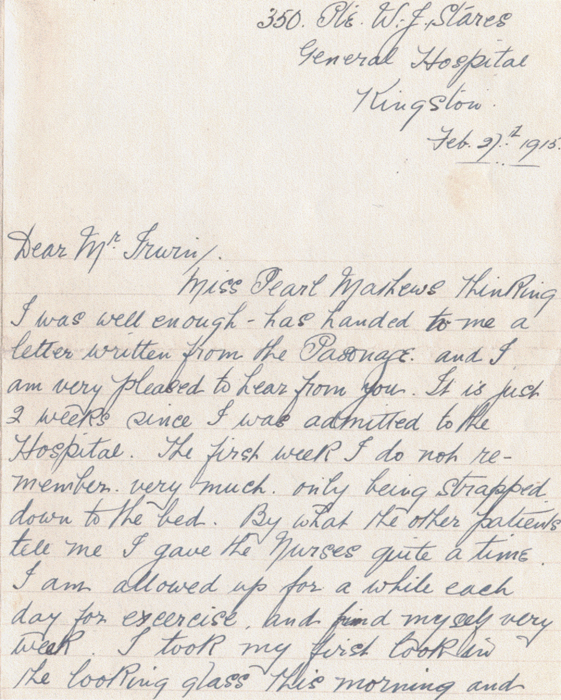 350. Pte. W. J. Stares
General Hospital
Kingston.
Feb. 27th 1915.
Dear Mr. Irwin/.
Miss Pearl Mathews thinking
I was well enough - has handed to me a
letter written from the Pasonage. and I
am very pleased to hear from you. It is just
2 weeks since I was admitted to the
Hospital. The first week I do not re-
member. very much. only being strapped
down to the bed. By what the other patients
tell me I gave the Nurses quite a time.
I am allowed up for a while each
day for excercise. and find myself very
week. I took my first look in
the looking glass this morning and